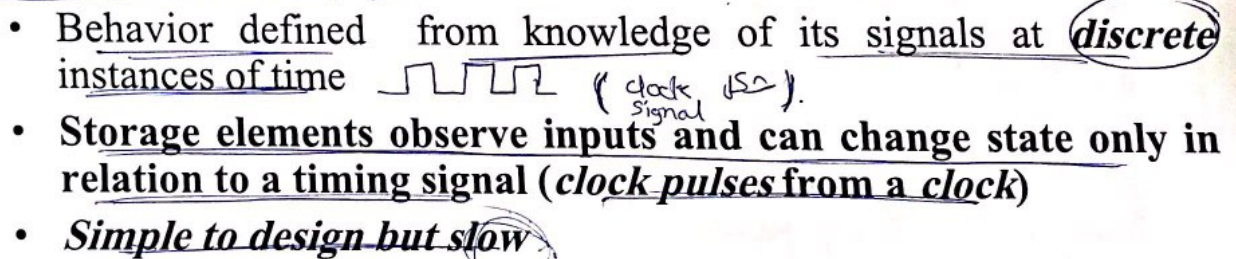 • Behavior defined from knowledge of its signals at discrete
instances of time ( clock
signal ).
• Storage elements observe inputs and can change state only in
relation to a timing signal (clock pulses from a clock)
• Simple to design but slow